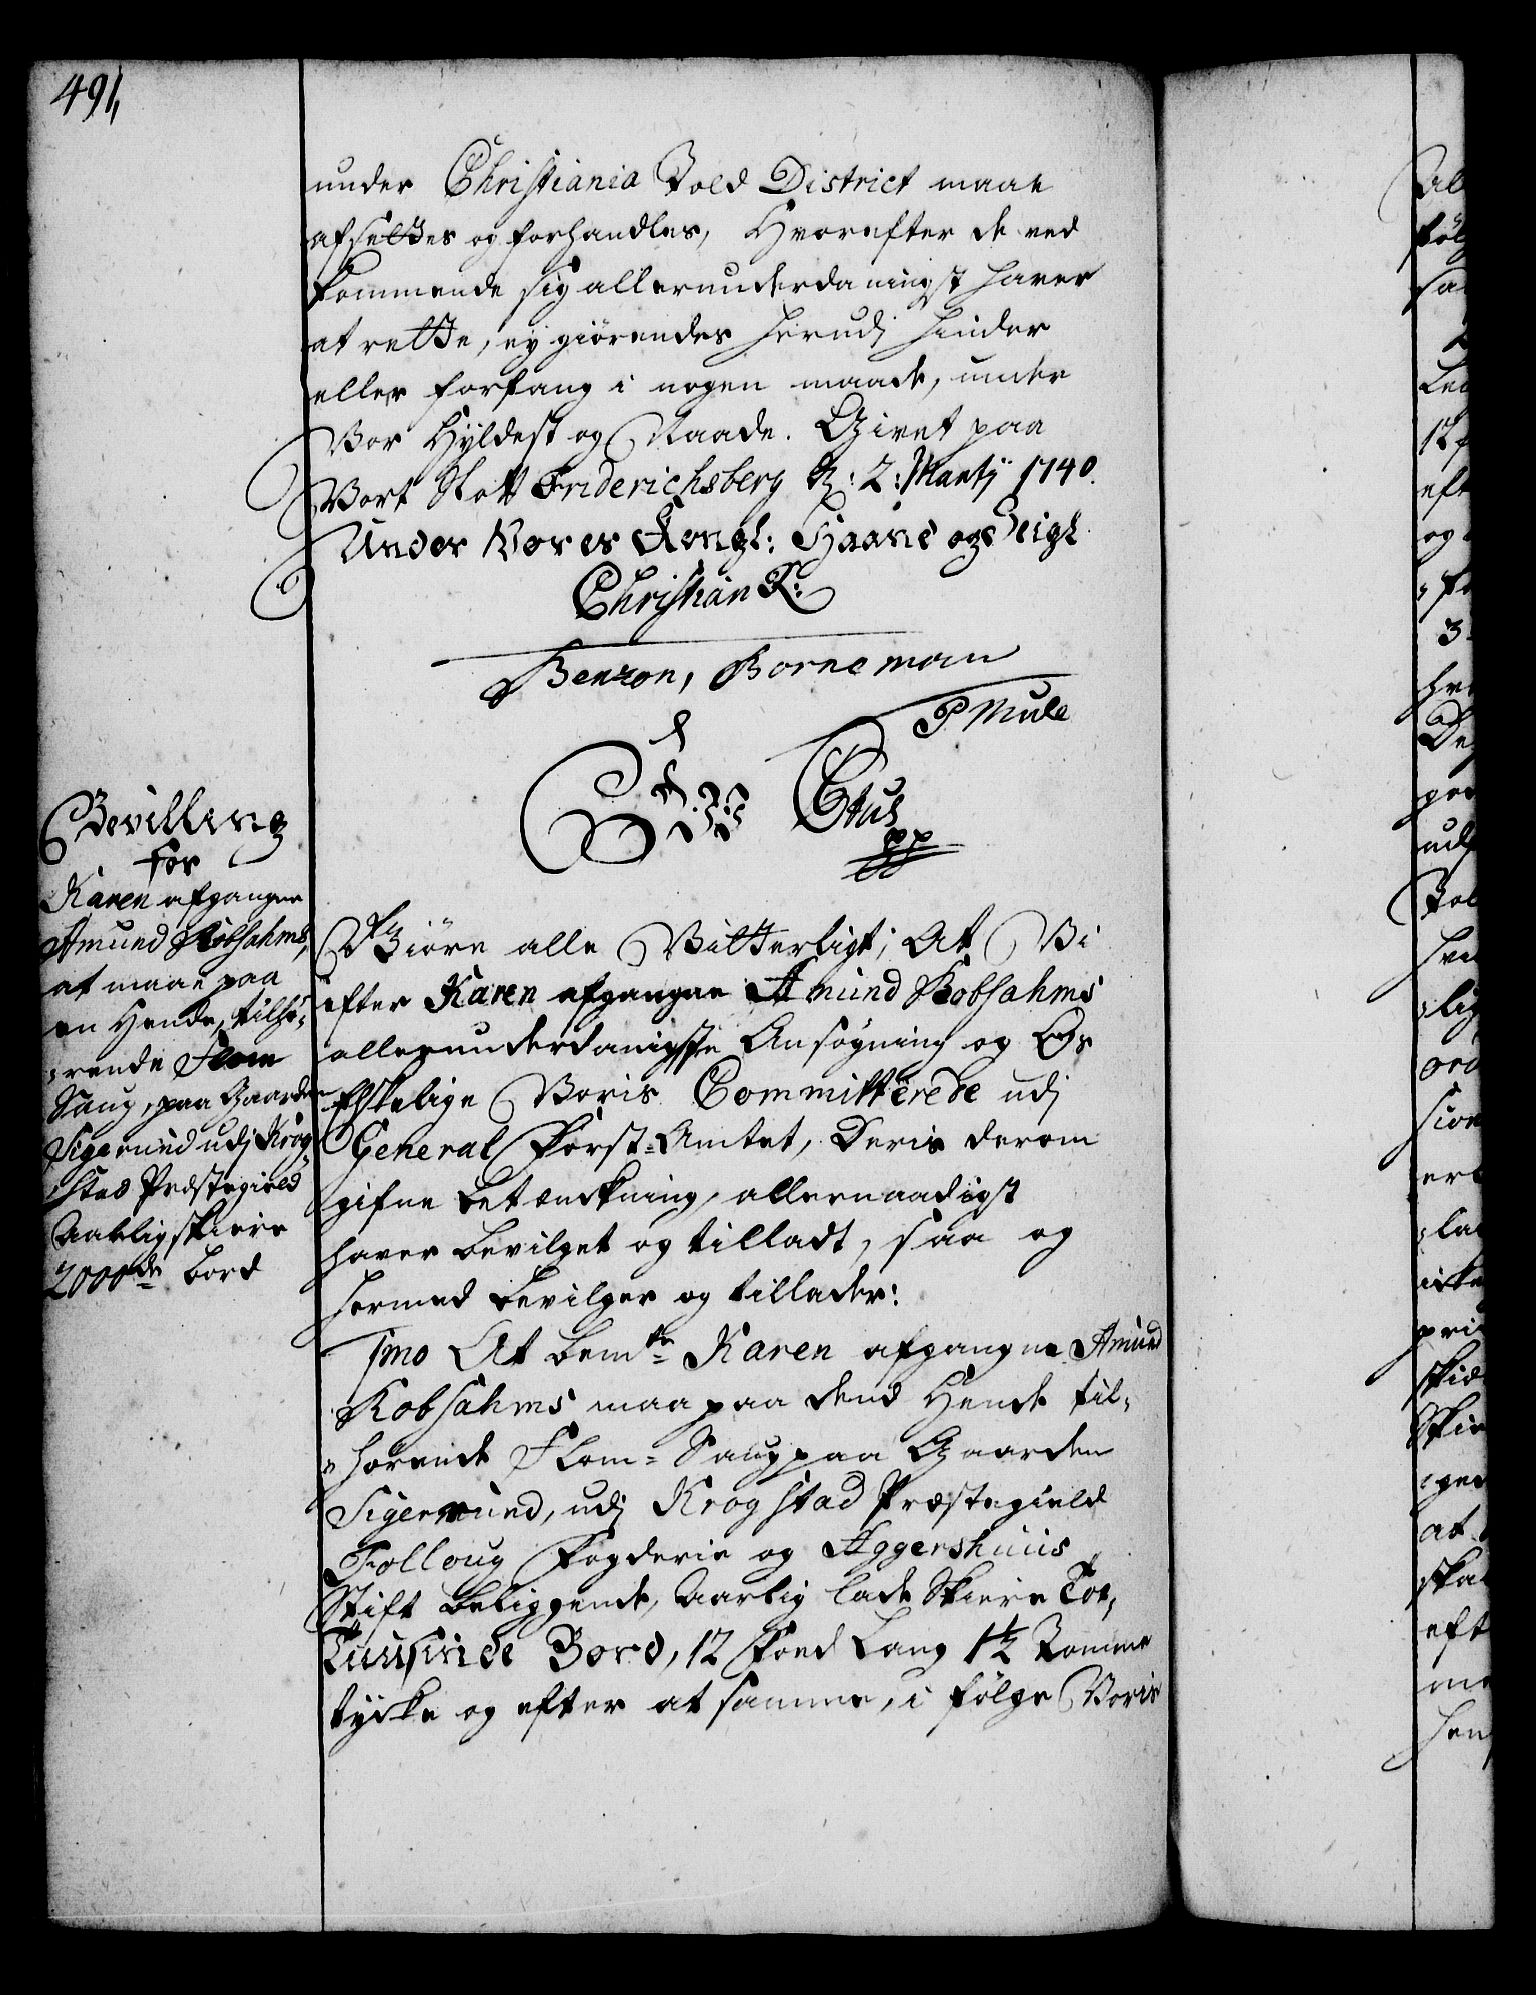 491,
under Christiania Told District maae
afsettes og forhandles, Hvorefter de ved
kommende sig allerunderdanigst haver
at rette, ey giörendes herudj Hinder
eller forfang i nogen maade, under
Vor Hyldest og Naade. Givet paa
Vort Slott Friderichsberg d: 2: Martÿ 1740.
Under Vores Kongl: Haand og Seigl
Christian R:
Benzon, Borneman
P Mule
Bevilling
for
Karen afgangne
Amund Kobsahms,
at maae paa
en Hende, tilhö¬
rende Flom
Saug, paa Gaarden
Sigerund udj Krog¬
stad Præstegield
Aarlig skiere
2000de bord
Giöre alle Vitterligt; At Vi
efter Karen afgangne Amund Kobsahms
allerunderdanigste Ansögning og Os
Elskelige Voris Committerede udj
General Forst-Amtet, Deris derom
gifne betænckning, allernaadigst
haver bevilget og tilladt, saa og
hermed bevilger og tillader:
1mo At bemte Karen afgangne Amund
Kobsahms maa paa dend Hende til¬
hörende Flom- Saug paa Gaarden
Sigerund, udj Krogstad Præstegield
Folloug Fogderie og Aggershuus
Stift beliggende, Aarlig lade Skiere Toe,
Tuusinde Bord, 12 Foed Lang 1½ Tomme
tycke og efter at samme, i fölge Voris